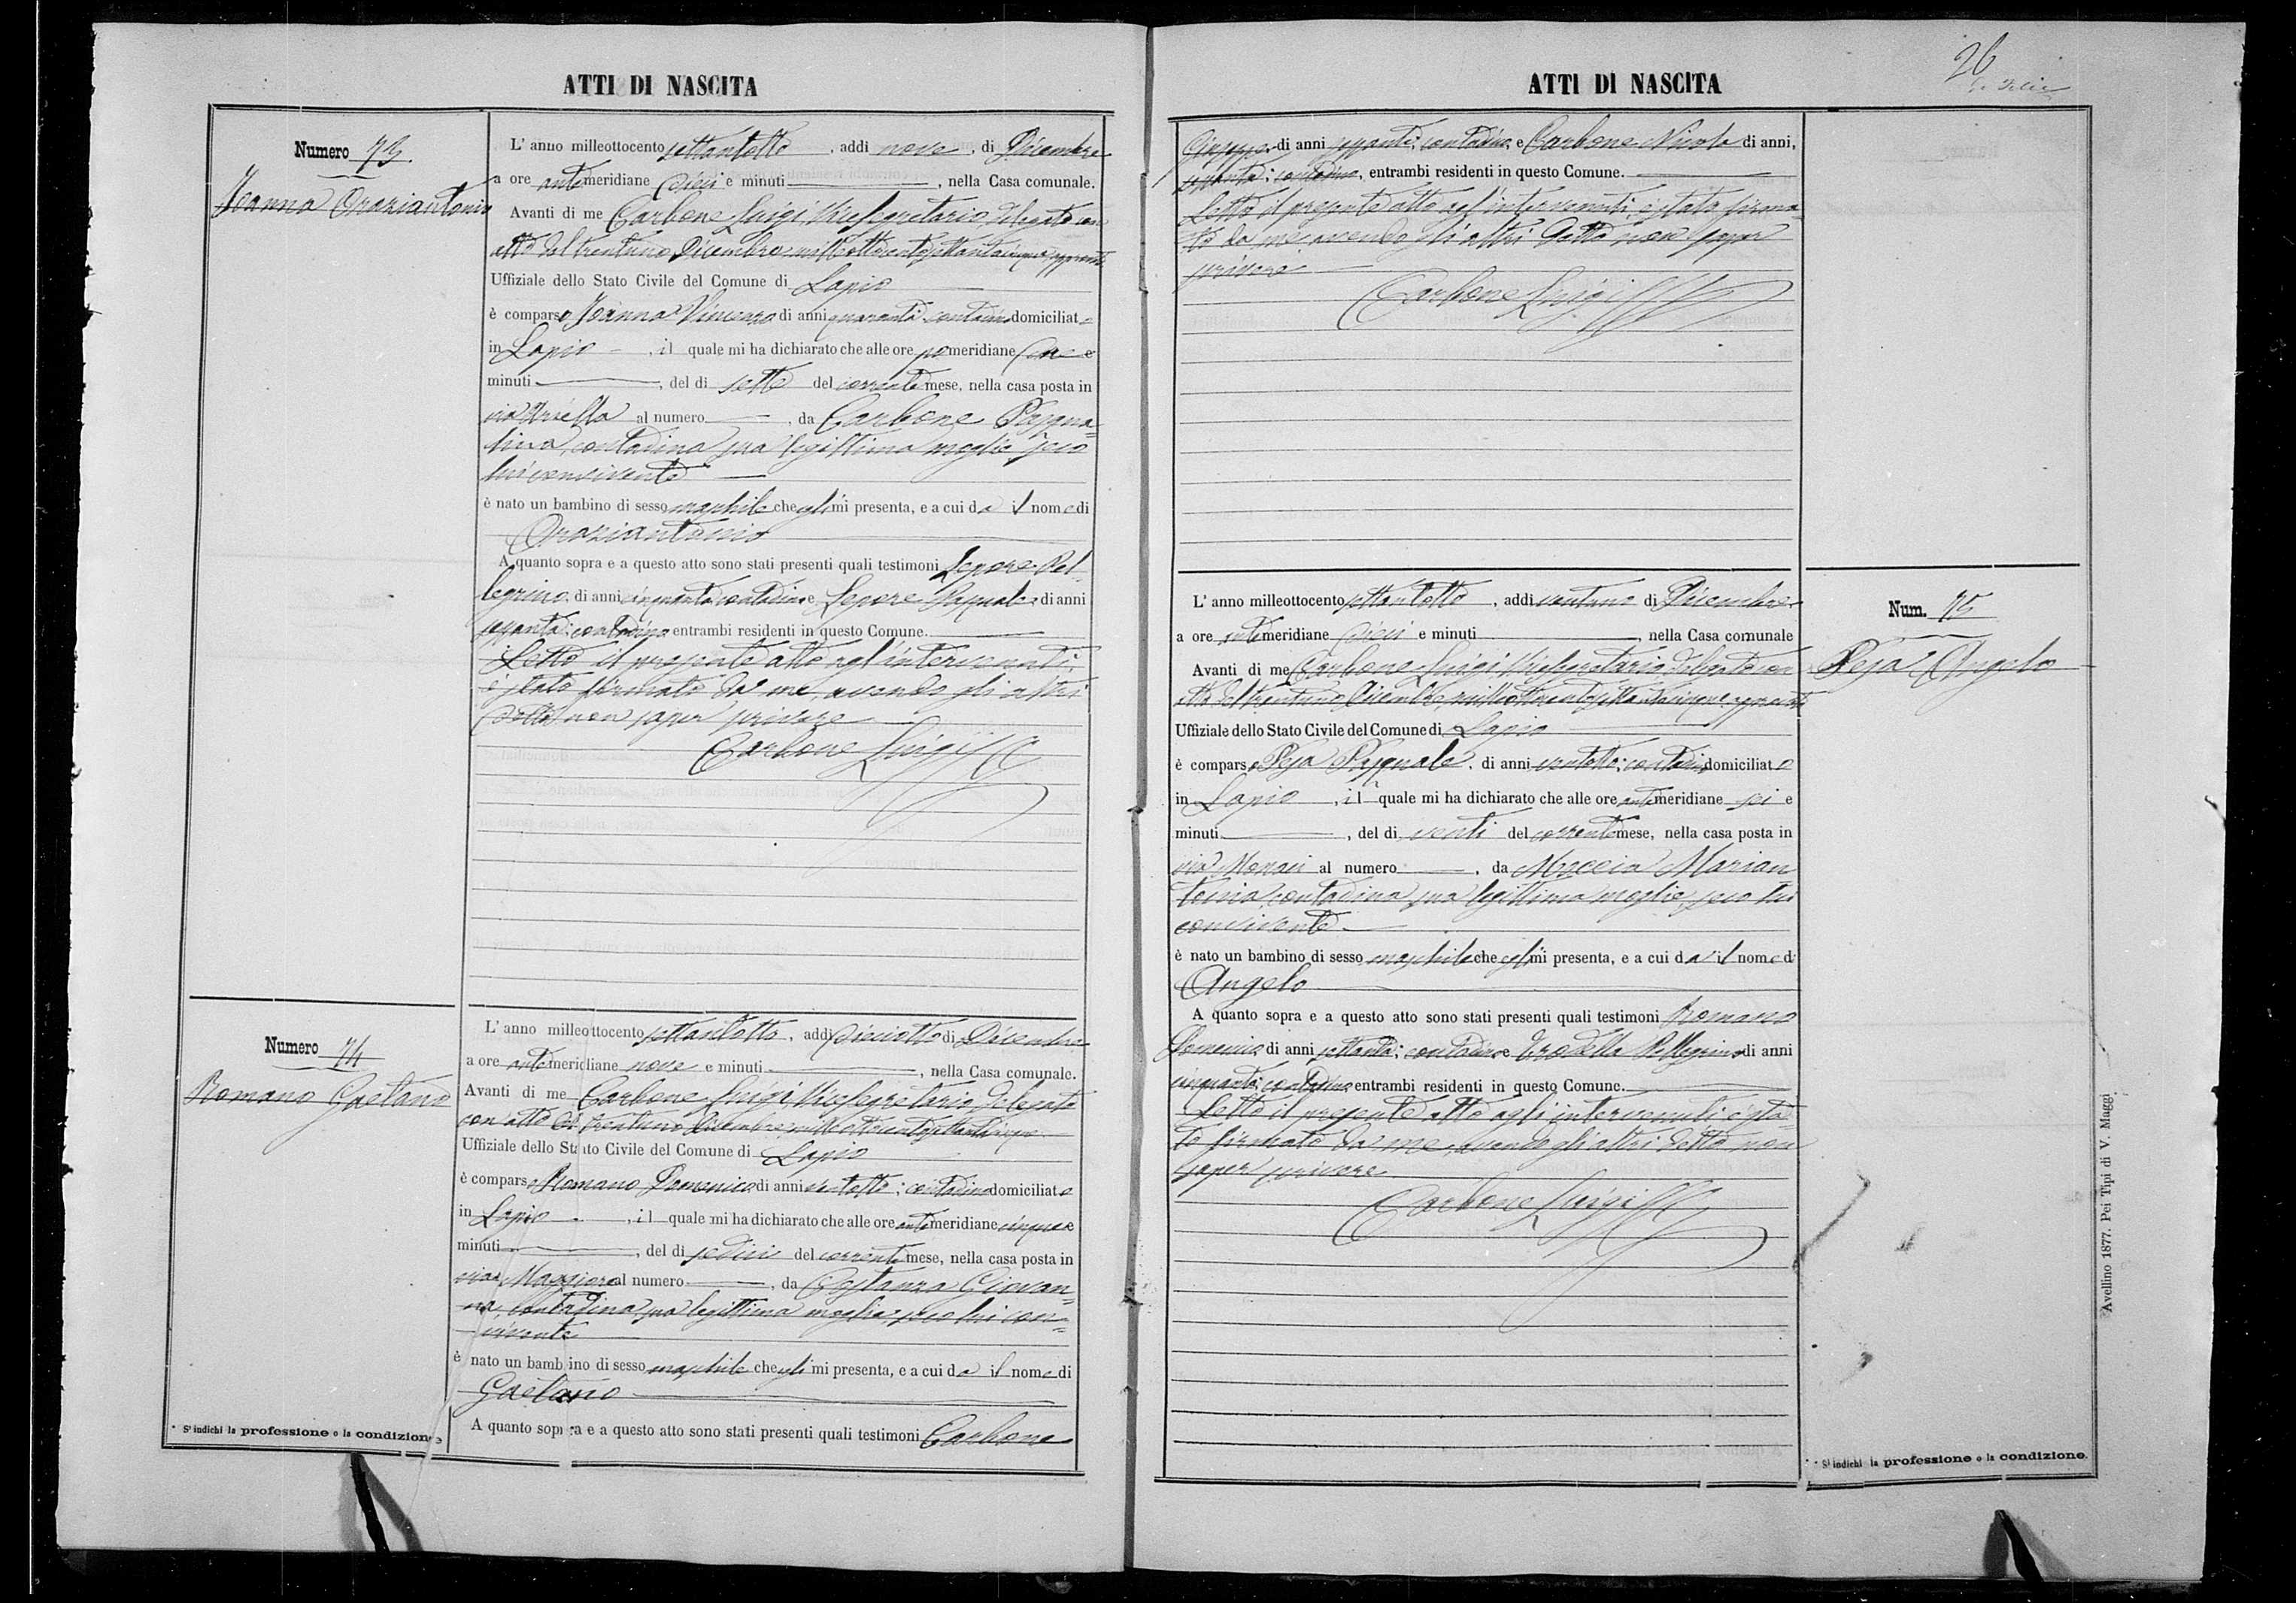 ATTI DI NASCITA
Numero 73
Joanna Oraziantonio
L' anno milleottocento settantotto, addì nove, di Dicembre
a ore antimeridiane dieci e minuti, nella Casa comunale.
Avanti di me Carbone Luigi, Vicesegretario, delegato con
atto del trentuno Dicembre milleottocentosettantacinque, approvato
Uffiziale dello Stato Civile del Comune di Lapio
è comparso Joanna Vincenzo di anni quaranta, contadino domiciliato
in Lapio, il quale mi ha dichiarato che alle ore pomeridiane e
minuti, del dì sette del corrente mese, nella casa posta in
via Uriella al numero, da Carbone Pasqua=
lina, contadina sua legittima moglie, seco
lui convivente
è nato un bambino di sesso maschile che egli mi presenta, e a cui da il nome di
Oraziantonio
A quanto sopra e a questo atto sono stati presenti quali testimoni Lepore Pel=
legrino di anni cinquanta, contadino e Lepore Pasquale di anni
sessanta; contadino entrambi residenti in questo Comune.
Letto il presente atto agl'intervenuti,
è stato firmato da me, avendo gli altri
detto non saper scrivere
Carbone Luigi
Numero 74
Romano Gaetano
L' anno milleottocento settantotto, addì dieciotto di Dicembre
a ore antimeridiane nove e minuti, nella Casa comunale.
Avanti di me Carbone Luigi, Vicesegretario, delegato
con atto del trentuno Dicembre milleottocentosettantacinque
Uffiziale dello Stato Civile del Comune di Lapio
è comparso Romano Domenico di anni ventotto; contadino domiciliato
in Lapio, il quale mi ha dichiarato che alle ore antimeridiane cinque e
minuti, del dì sedici del corrente mese, nella casa posta in
via Maggiore al numero, da Costanza Giovan=
na, contadina sua legittima moglie, seco lui con=
vivente
è nato un bambino di sesso maschile che egli mi presenta, e a cui da il nome di
Gaetano
A quanto sopra e a questo atto sono stati presenti quali testimoni Carbone
* Si indichi la professione o la condizione
ATTI DI NASCITA
26
Giuseppe di anni sessanta; contadino, e Carbone Nicola di anni,
sessanta; contadino, entrambi residenti in questo Comune.
Letto il presente atto agl'intervenuti, è stato firma=
to da me, avendo gli altri detto non saper
scrivere
Carbone Luigi
Num. 75
Pesa Angelo
L' anno milleottocento settantotto, addì ventuno di Dicembre
a ore antimeridiane dieci e minuti, nella Casa comunale
Avanti di me Carbone Luigi, Vicesegretario, delegato con
atto del trentuno Dicembre, milleottocentosettantacinque, approvato
Uffiziale dello Stato Civile del Comune di Lapio
è comparso Pesa Pasquale, di anni ventotto; contadino domiciliato
in Lapio, il quale mi ha dichiarato che alle ore antimeridiane sei e
minuti, del dì venti del corrente mese, nella casa posta in
via Monaci al numero, da Moccia Marian
tonia, contadina sua legittima moglie, seco lui
convivente
è nato un bambino di sesso maschile che egli mi presenta, e a cui da il nome di
Angelo
A quanto sopra e a questo atto sono stati presenti quali testimoni Romano
Domenico di anni settanta; contadino e Trodella Pellegrino di anni
cinquanta; contadino entrambi residenti in questo Comune.
Letto il presente atto agli intervenuti è sta=
to firmato da me, avendo gli altri detto non
saper scrivere
Carbone Luigi
* Si indichi la professione o la condizione.
Avellino 1877. Pei Tipi di V. Maggi